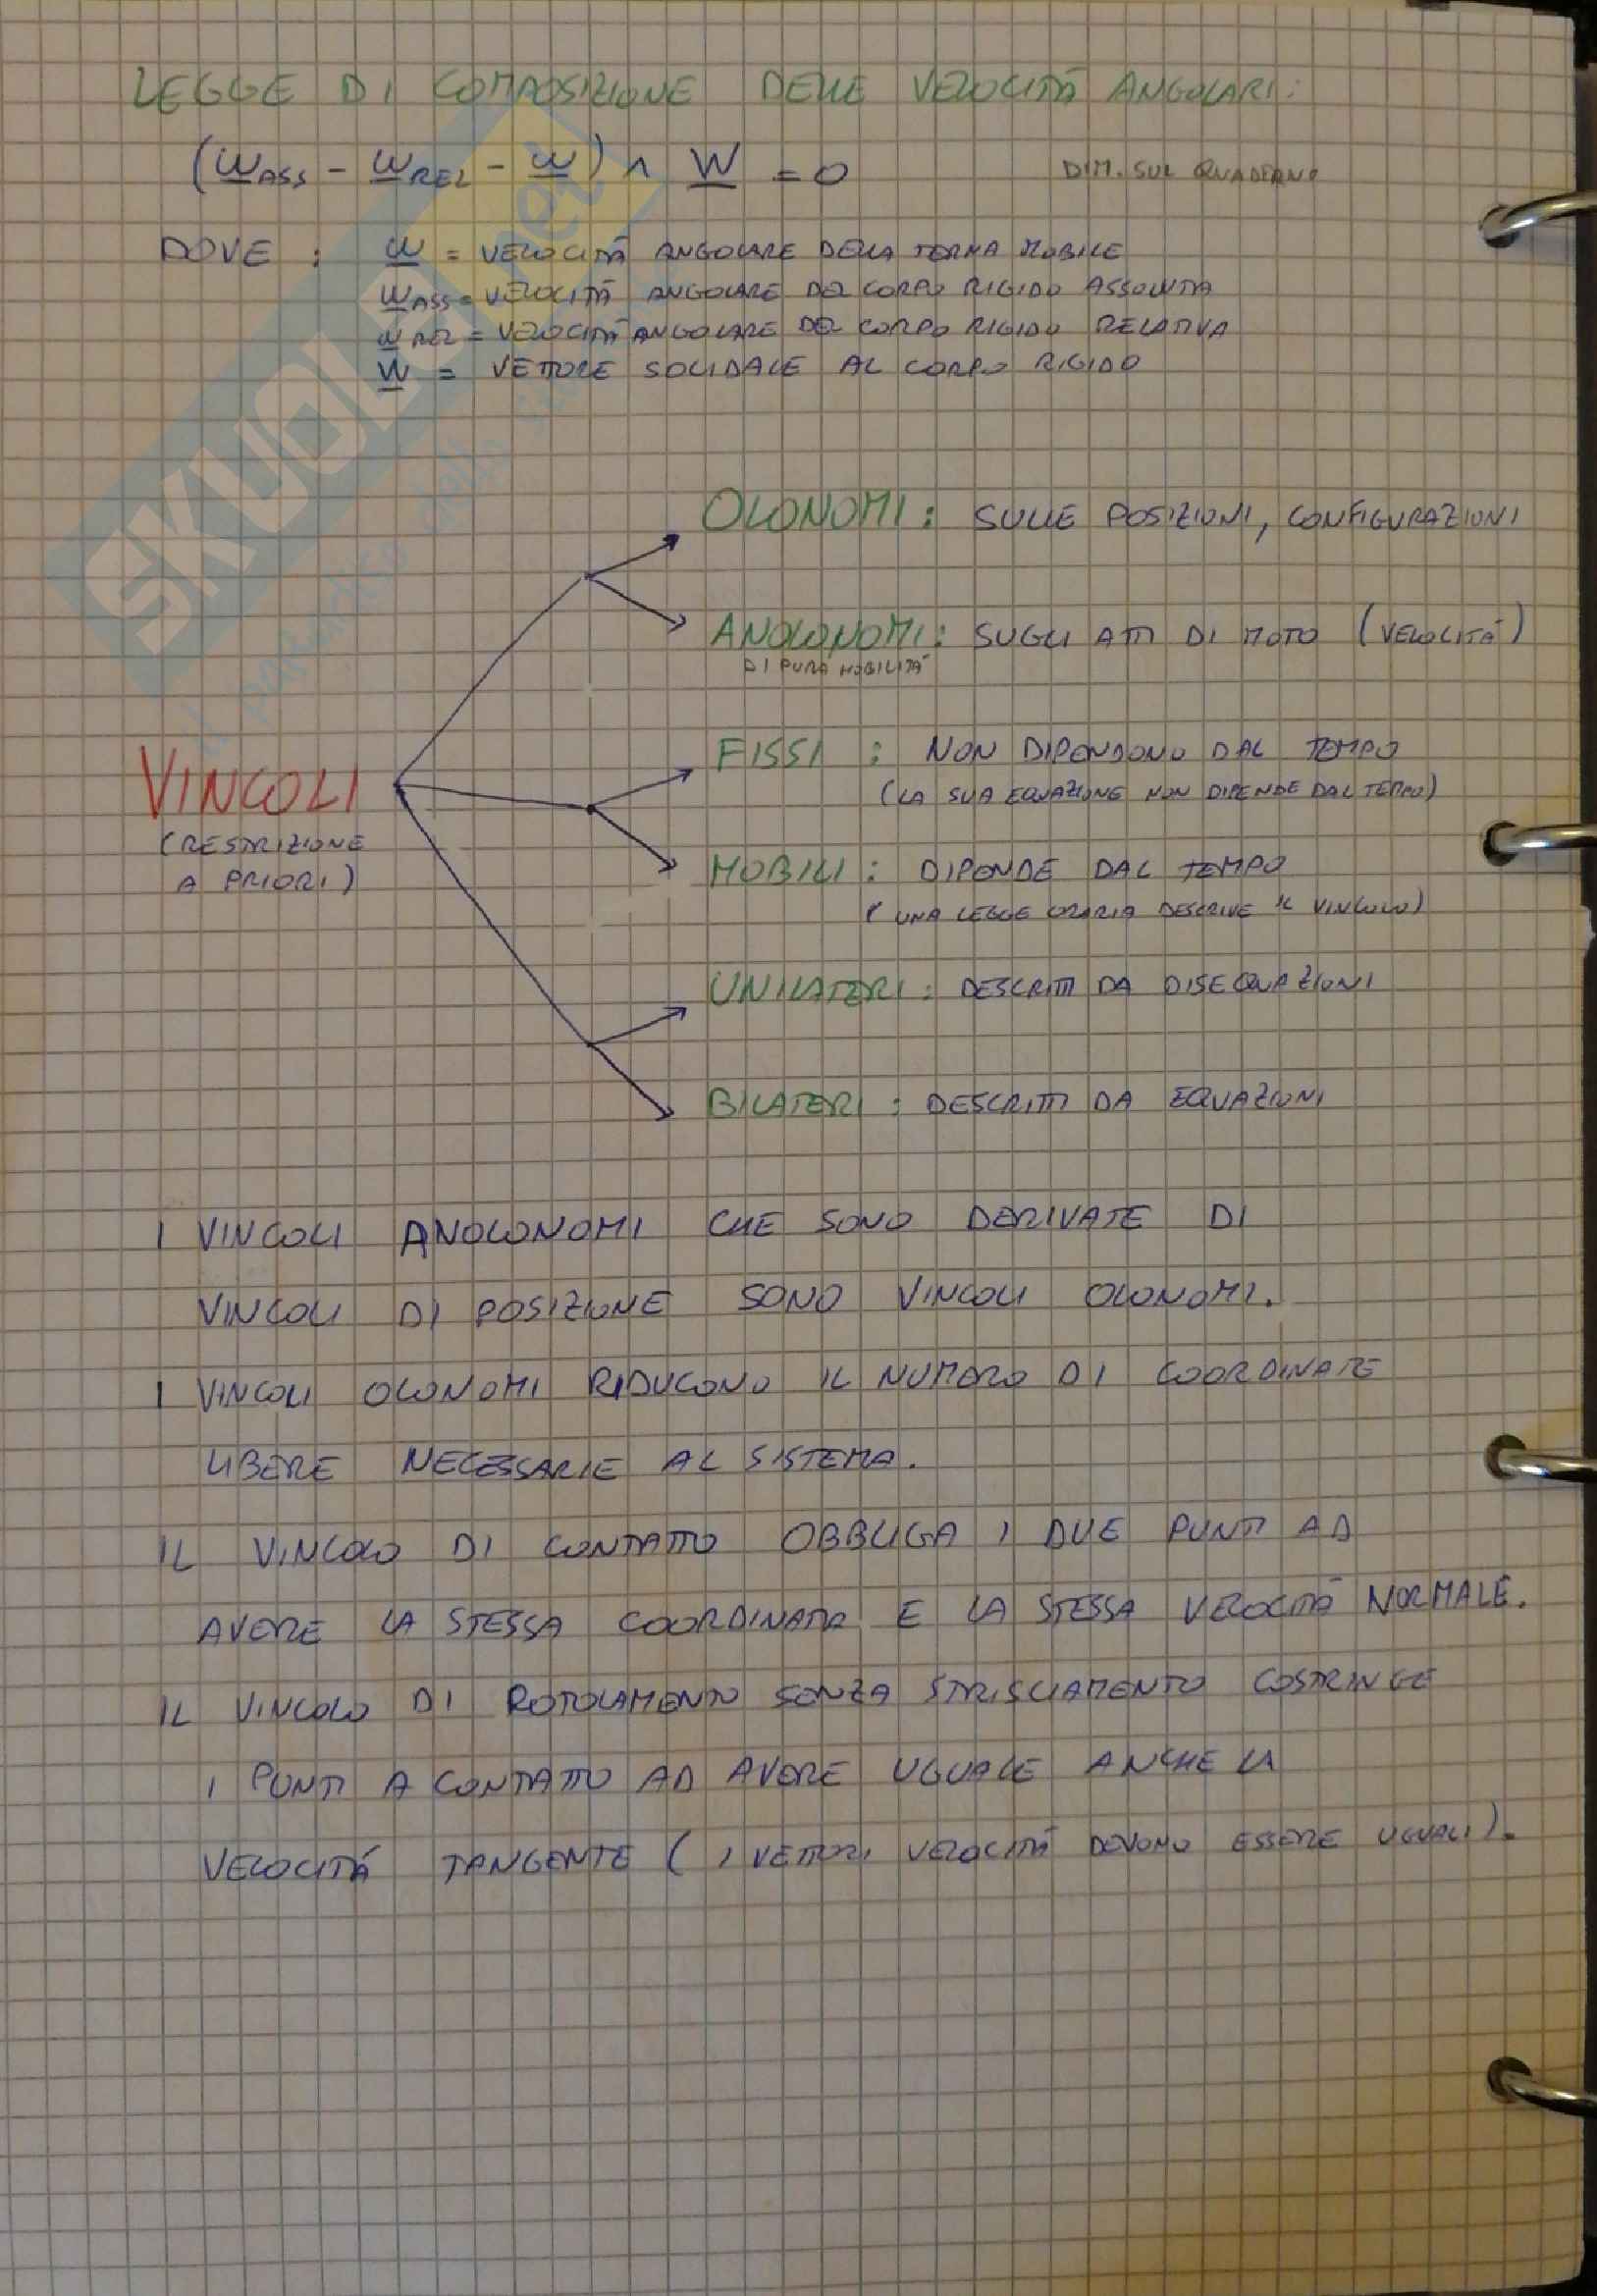 LEGGE DI COMPOSIZIONE DELLE VELOCITÀ ANGOLARI:
(ω ASS - ω REL - ω) ∧ W = 0 DIM. SUL QUADERNO
DOVE : ω = VELOCITÀ ANGOLARE DELLA TERNA MOBILE
ω ASS = VELOCITÀ ANGOLARE DEL CORPO RIGIDO ASSOLUTA
ω REL = VELOCITÀ ANGOLARE DEL CORPO RIGIDO RELATIVA
W = VETTORE SOLIDALE AL CORPO RIGIDO
SKUOLA.net
OLONOMI : SULLE POSIZIONI, CONFIGURAZIONI
ANOLONOMI : SUGLI ATTI DI MOTO (VELOCITÀ)
DI PURA MOBILITÀ
FISSI : NON DIPENDONO DAL TEMPO
(LA SUA EQUAZIONE NON DIPENDE DAL TEMPO)
VINCOLI
(RESTRIZIONE
A PRIORI)
MOBILI : DIPENDE DAL TEMPO
(UNA LEGGE ORARIA DESCRIVE IL VINCOLO)
UNILATERI : DESCRITTI DA DISEQUAZIONI
BILATERI : DESCRITTI DA EQUAZIONI
I VINCOLI ANOLONOMI CHE SONO DERIVATE DI
VINCOLI DI POSIZIONE SONO VINCOLI OLONOMI.
I VINCOLI OLONOMI RIDUCONO IL NUMERO DI COORDINATE
LIBERE NECESSARIE AL SISTEMA.
IL VINCOLO DI CONTATTO OBBLIGA I DUE PUNTI AD
AVERE LA STESSA COORDINATA E LA STESSA VELOCITÀ NORMALE.
IL VINCOLO DI ROTOLAMENTO SENZA STRISCIAMENTO COSTRINGE
I PUNTI A CONTATTO AD AVERE UGUALE ANCHE LA
VELOCITÀ TANGENTE (I VETTORI VELOCITÀ DEVONO ESSERE UGUALI).